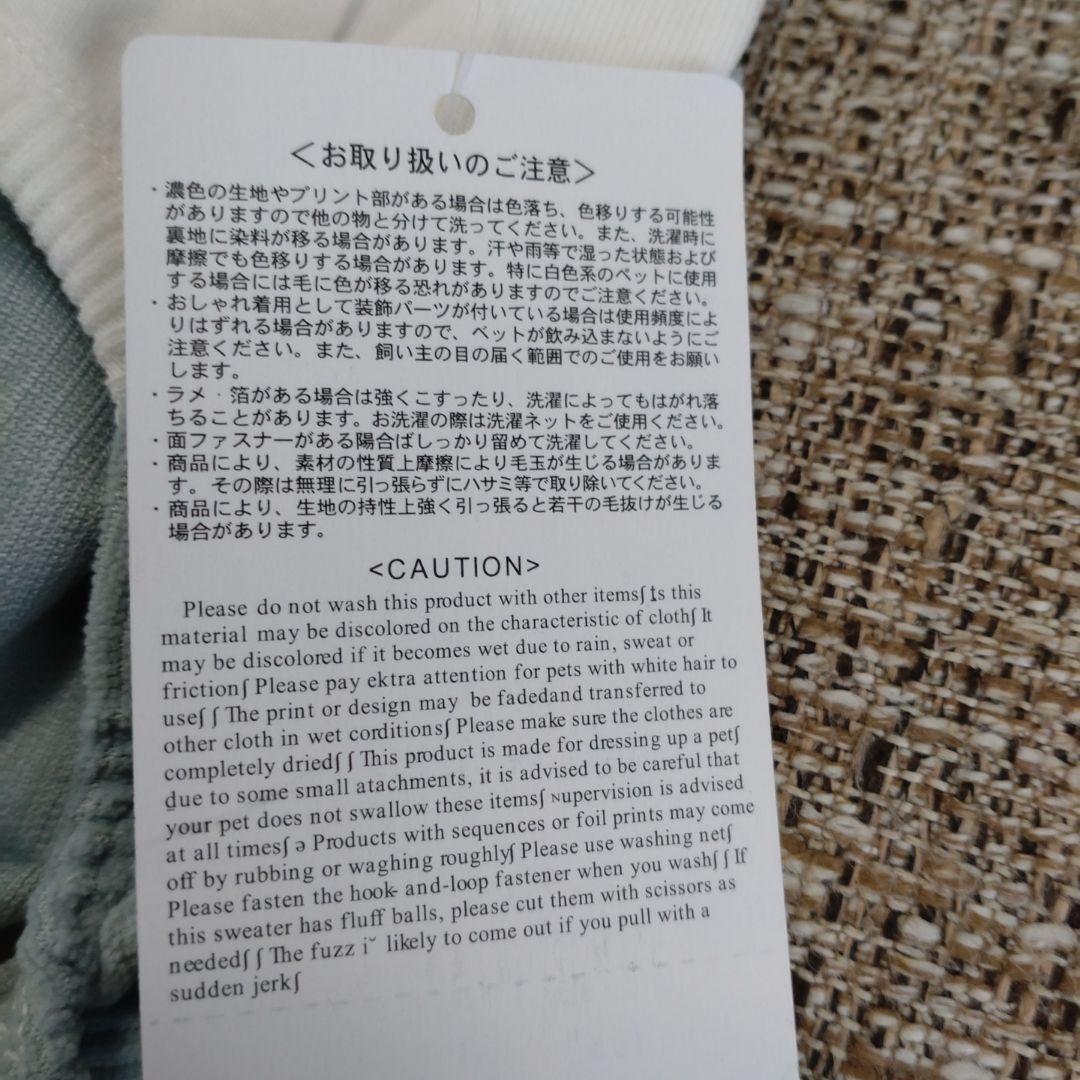 <お取り扱いのご注意>
・濃色の生地やプリント部がある場合は色落ち、色移りする可能性
がありますので他の物と分けて洗ってください。また、洗濯時に
裏地に染料が移る場合があります。汗や雨等で湿った状態および
摩擦でも色移りする場合があります。特に白色系のペットに使用
する場合には毛に色が移る恐れがありますのでご注意ください。
・おしゃれ着用として装飾パーツが付いている場合は使用頻度によ
りはずれる場合がありますので、ペットが飲み込まないようにご
注意ください。また、飼い主の目の届く範囲でのご使用をお願い
します。
・ラメ・箔がある場合は強くこすったり、洗濯によってもはがれ落
ちることがあります。お洗濯の際は洗濯ネットをご使用ください。
・面ファスナーがある陽合ばしっかり留めて洗濯してください。
・商品により、素材の性質上摩擦により毛玉が生じる場合がありま
す。その際は無理に引っ張らずにハサミ等で取り除いてください。
・商品により、生地の持性上強く引っ張ると若干の毛抜けが生じる
場合があります。
<CAUTION>
Please do not wash this product with other items∫ ts this
material may be discolored on the characteristic of cloth∫ It
may be discolored if it becomes wet due to rain, sweat or
friction∫ Please pay ektra attention for pets with white hair to
use∫ ∫ The print or design may be fadedand transferred to
other cloth in wet corditions∫ Please make sure the clothes are
completely dried∫ ∫ This product is made for dressing up a pet∫
due to some small atachments, it is advised to be careful that
your pet does not swallow these items∫ Nupervision is advised
at all times∫ ə Products with sequences or foil prints may come
off by rubbing or waghing roughly∫ Please use washing net∫
Please fasten the hook-and-loop fastener when you wash∫ ∫ If
this sweater has fluff balls, please cut them with scissors as
needed∫ ∫ The fuzz i˘ likely to come out if you pull with a
sudden jerk∫